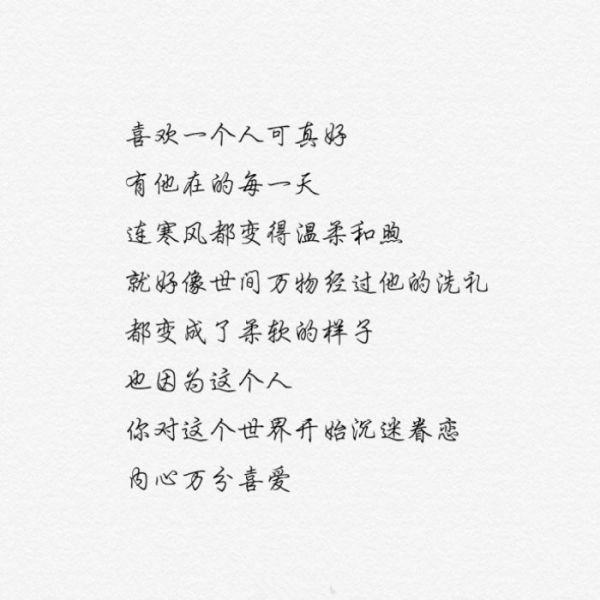 喜欢一个人可真好
有他在的每一天
连寒风都变得温柔和煦
就好像世间万物经过他的洗礼
都变成了柔软的样子
也因为这个人
你对这个世界开始沉迷眷恋
内心万分喜爱